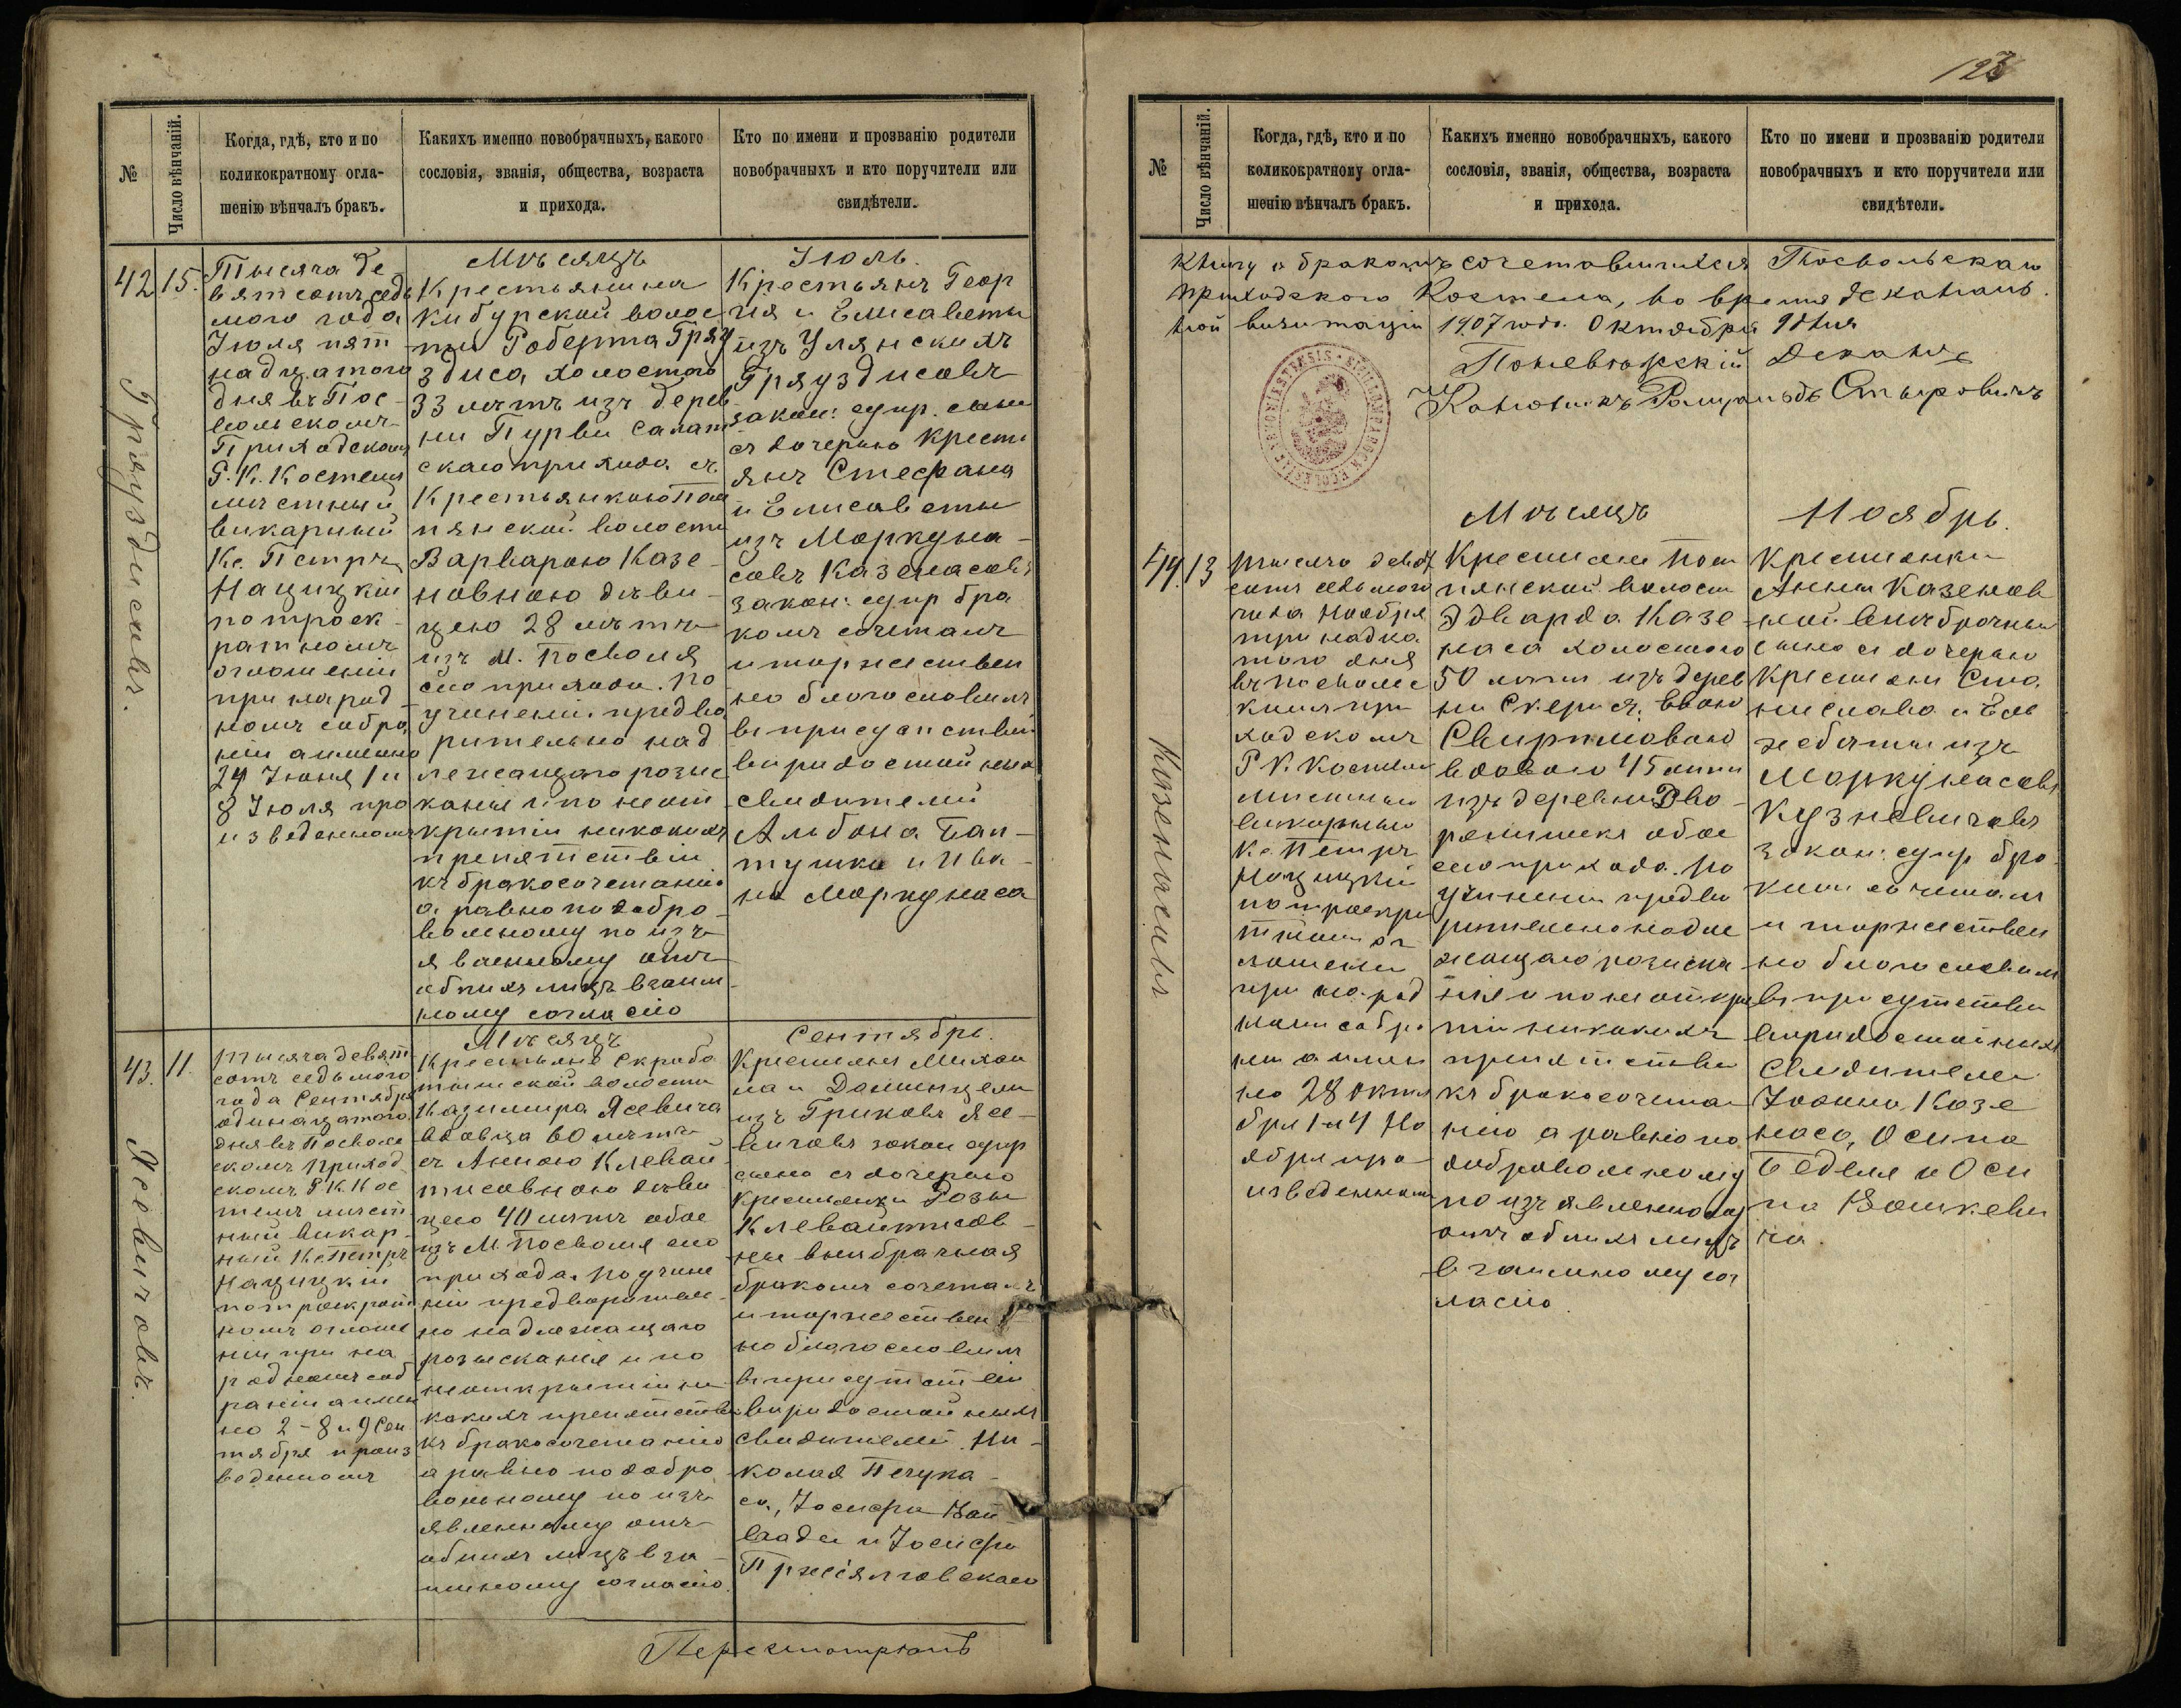 123
№
Число вѣнчаній.
Когда, гдѣ, кто и по
коликократному огла-
шенію вѣнчалъ бракъ.
Какихъ именно новобрачныхъ, какого
сословія, званія, общества, возраста
и прихода.
Кто по имени и прозванію родители
новобрачныхъ и кто поручители или
свидѣтели.
42
15.
Грауздисовъ.
Тысяча де
вятсотъ седь
мого года
Іюля пят
надцатого
дня въ Пос-
вольскомъ
Приходскомъ
Р. К. Костелѣ
мѣстный
викарный
Кс. Петръ
Нацицкій
по троек-
ратномъ
оглошеніи
при народ
номъ собра
ніи а именно
24 Іюня 1 и
8 Іюля про
изведенномъ
Мѣсяцъ
Крестьянина
Кибурской волос
ти Роберта Гряу
здиса холостого
33 лѣтъ изъ дерев
ни Пурви Салат
скаго прихода съ
Крестьянкою Пом
пянской волости
Варварою Казе-
новною дѣви-
цею 28 лѣтъ
изъ М. Посволя
сего прихода. По
учиненіи предва
рительно над
лежащаго розыс
канія и по неот
крытіи никакихъ
препятствій
къ бракосочетанію
а равно по добро-
вольному по изъ
явленному отъ
обоихъ лицъ взаим
ному согласію
Іюль.
Крестьянъ Геор
гія и Елисаветы
изъ Улянскихъ
Гряуздисовъ
закон: супр. сына
съ дочерью Крести
янъ Стефана
и Елисаветы
изъ Моркуна-
совъ Казенасовъ
закон: супр бра
комъ сочеталъ
и торжествен
но благословилъ
въ присутствіи
вѣридостойныхъ
свидителей
Альбона Бал-
тушка и Ива-
на Моркунаса
43.
11.
Ясевичовъ.
Тысяча девят
сотъ седьмого
года Сентября
одинадцатого
дня въ Посволь
скомъ Приход
скомъ Р К Кос
телѣ мѣст
ный викар-
ный Кс Петръ
Нацицкій
по троекрат
номъ оглоше
ніи при на
родномъ соб
раніи а имен
но 2 - 8 и 9 Сен
тября произ
веденномъ
Мѣсяцъ
Крестьяне Скрабо
тишской волости
Казимира Ясевича
вдовца 60 лѣтъ
съ Анною Клевай
тисовною дѣви
цею 40 лѣтъ обое
изъ М. Посволя сего
прихода. По учине
ніи предварител-
но надлежащаго
розысканія и по
неоткрытіи ни
какихъ препятствій
къ бракосочетанію
а равно по добро
вольному по изъ
явленному отъ
обоихъ лицъ вза-
имному согласію.
Сентябрь.
Крестьянъ Михаи
ла и Доминцели
изъ Гриковъ Ясе-
вичовъ закон супр
сына съ дочерью
Крестьянки Розы
Клевайтисов-
ны внибрачная
бракомъ сочеталъ
и торжествен
но благословилъ
въ присутствіи
вѣридостойныхъ
свидителей Ни-
колая Печука-
са, Іосифа Вай
лади и Іосифа
Пржіялговскаго
Пересмотрѣнъ
№
Число вѣнчаній.
Когда, гдѣ, кто и по
коликократному огла-
шенію вѣнчалъ бракъ.
Какихъ именно новобрачныхъ, какого
сословія, званія, общества, возраста
и прихода.
Кто по имени и прозванію родители
новобрачныхъ и кто поручители или
свидѣтели.
Книгу о бракомъ сочетавшихся Посвольскаго
приходскаго Костела, во время деканаль
ной визитаціи 1907 года. Октября 9 дня
Поневѣжскій Деканъ
Каноникъ Ромуальдъ Стыровичъ
44.
13
Казенасовъ
Тысяча девят
сотъ седьмого
года Ноября
тринадца
того дня
въ Посволс
комъ при
ходскомъ
Р. К. Костели
мистный
викарный
Кс. Петръ
Нацицкій
по троекра
тномъ ог
лошеніи
при народ
номъ собра
ніи а имен
но 28 Октя
бря 1 и 4 Но
ября про-
изведенномъ
Мѣсяцъ
Крестьяни Пом
пянской волости
Эдварда Казе-
наса холостого
50 лѣтъ изъ дерев
ни Скеря. Евою
Свирпловою
вдовою 45 лѣтъ
изъ деревни Дво-
ренишекъ обое
сего прихода. По
учинени предва
рительно надле
жащаго розиска
нія и по неоткры
тіи никакихъ
препятстви
къ бракосочета
нію а равно по
добровольному
по изъявленному
отъ обоихъ лицъ
взаимному сог
ласію.
Ноябрь.
Крестьянки
Анны Казенов
ной внибрачный
сына съ дочерью
Крестьянъ Ста
нислава и Ели
жебяты изъ
Моркунасовъ
Кузневичовъ
закон: супр бра
комъ сочеталъ
и торжествен
но благословилъ
въ присутстви
вѣридостойныхъ
свидителей
Іоанна Казе
наса, Осипа
Беделя и Оси
па Вошкеви
ча.